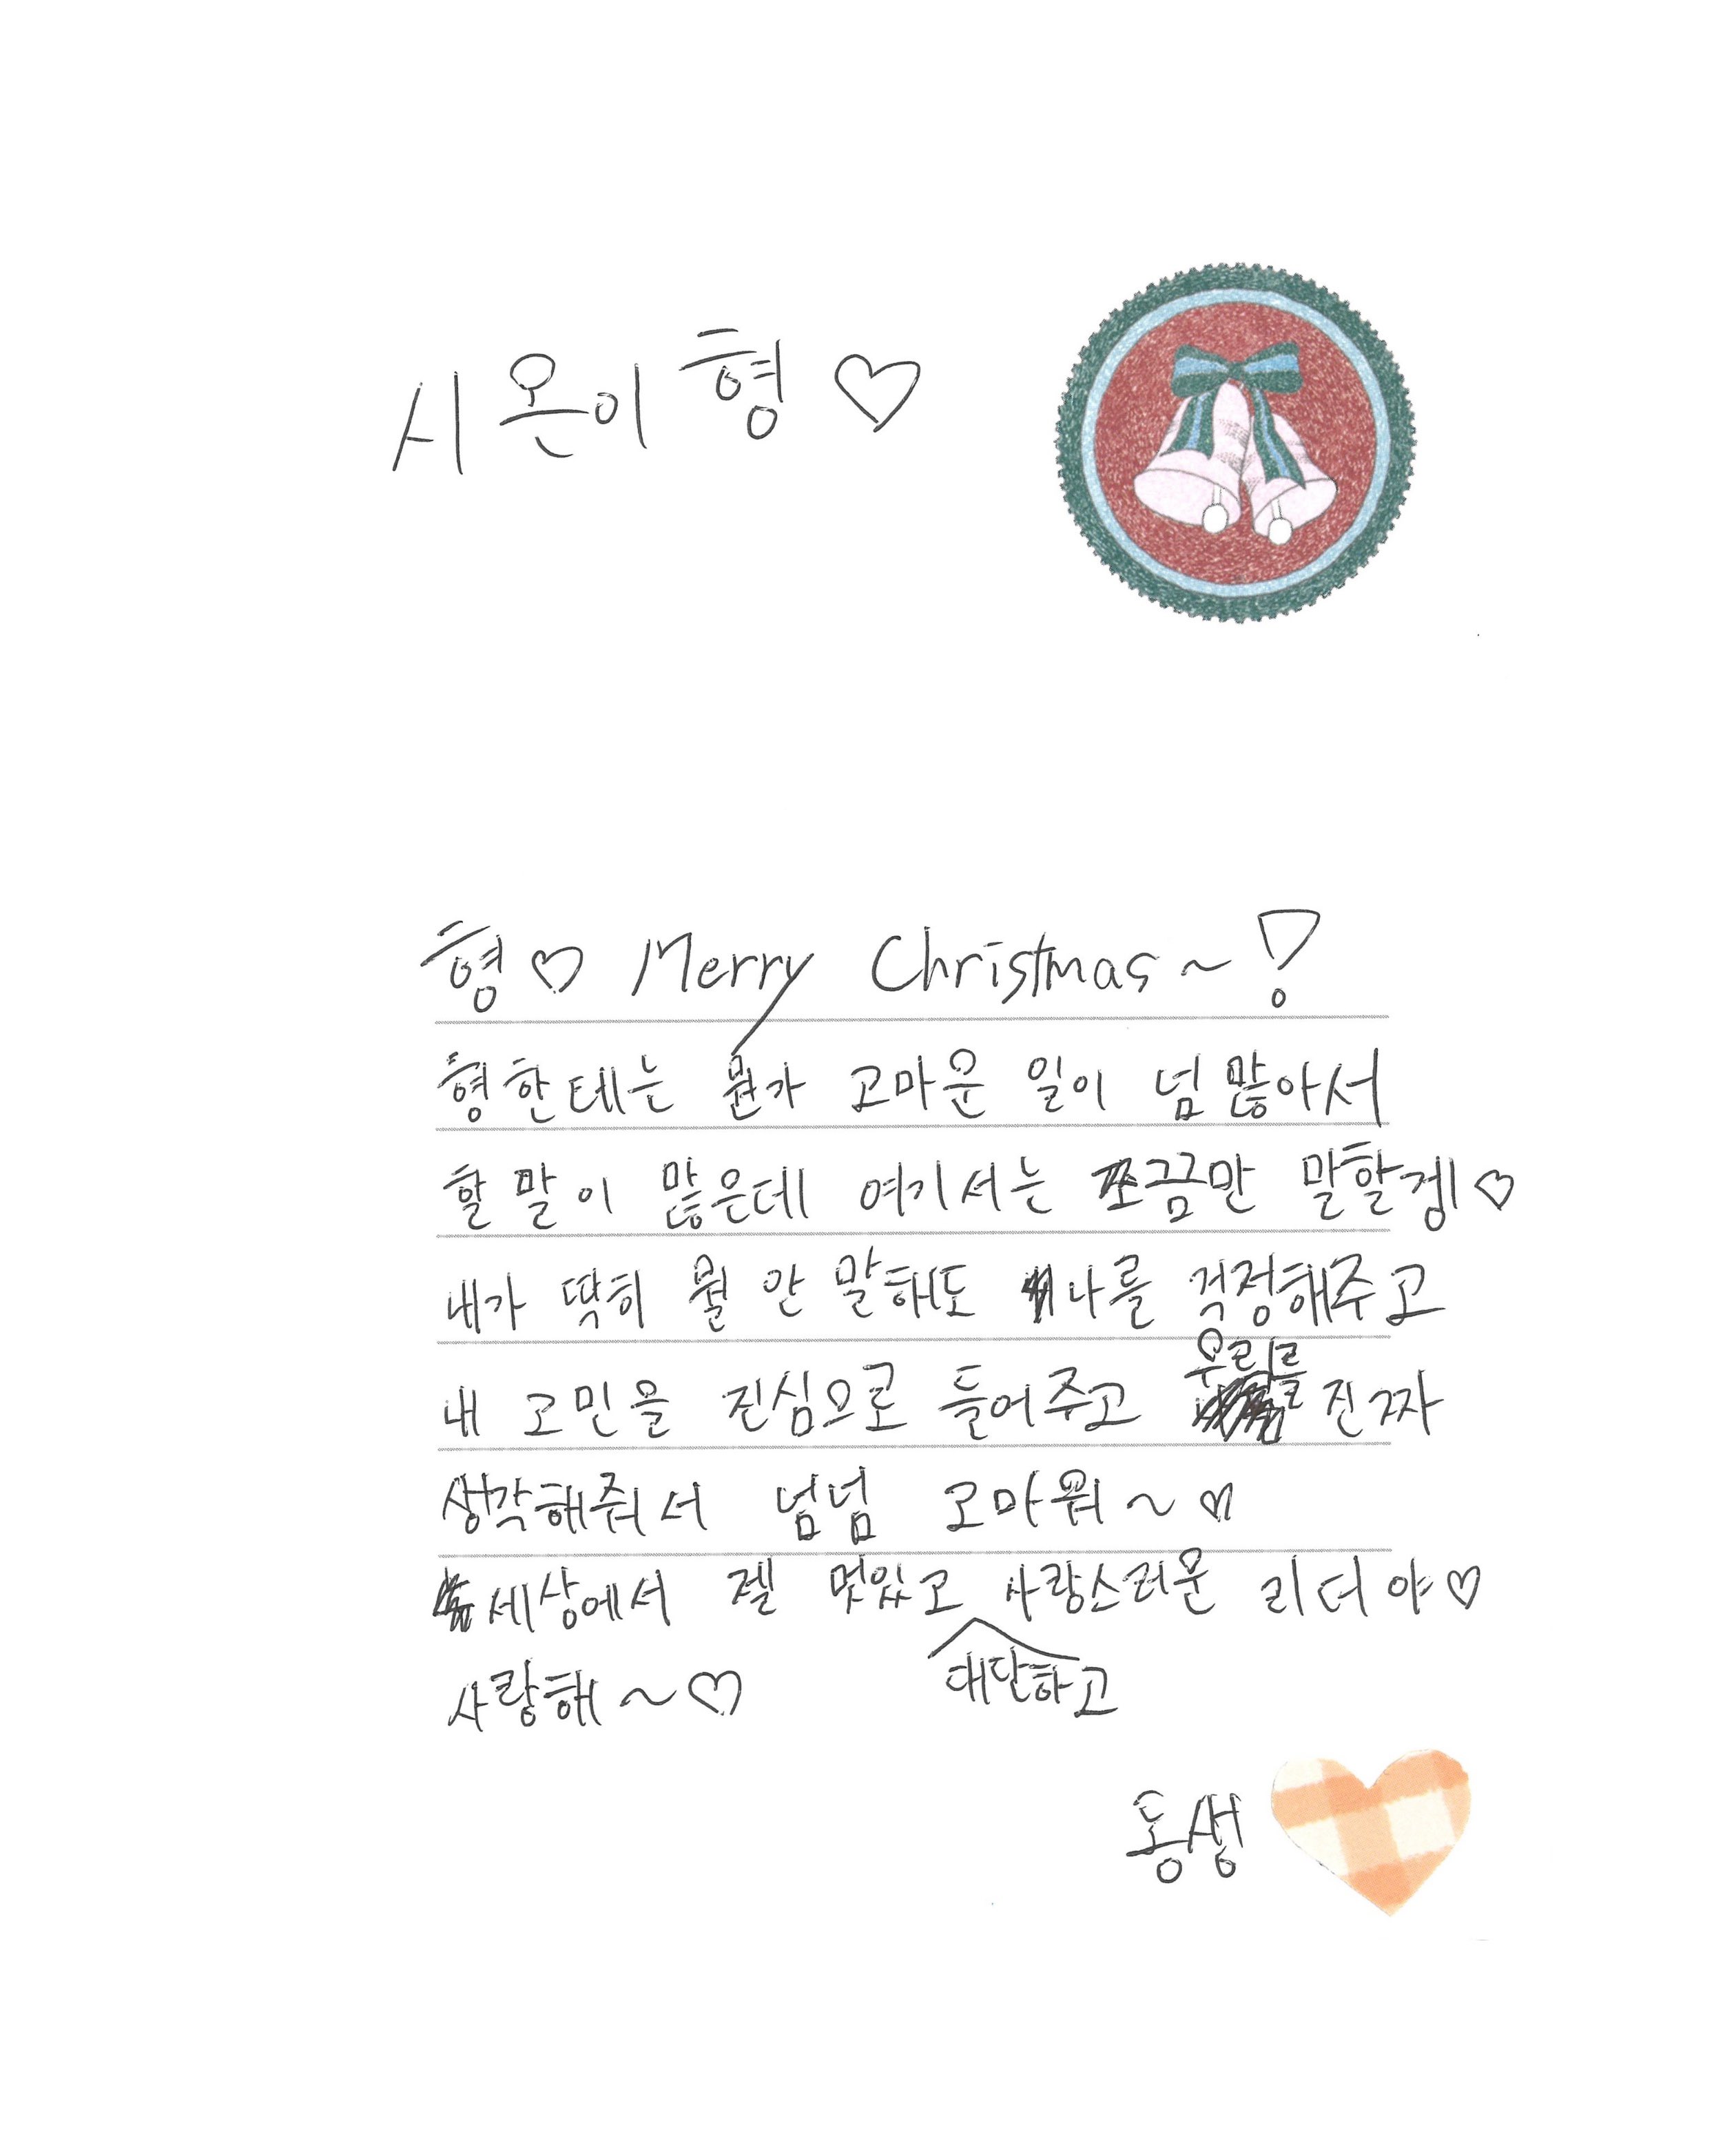 시온이 형 ♡
형 ♡ Merry Christmas ~ !
형한테는 뭔가 고마운 일이 넘 많아서
할 말이 많은데 여기서는 쪼금만 말할겡 ♡
내가 딱히 뭘 안 말해도 나를 걱정해주고
내 고민을 진심으로 들어주고 우리를 진짜
생각해줘서 넘넘 고마워 ~ ♡
세상에서 젤 멋있고 사랑스러운 리더야 ♡
대단하고
사랑해 ~ ♡
동생